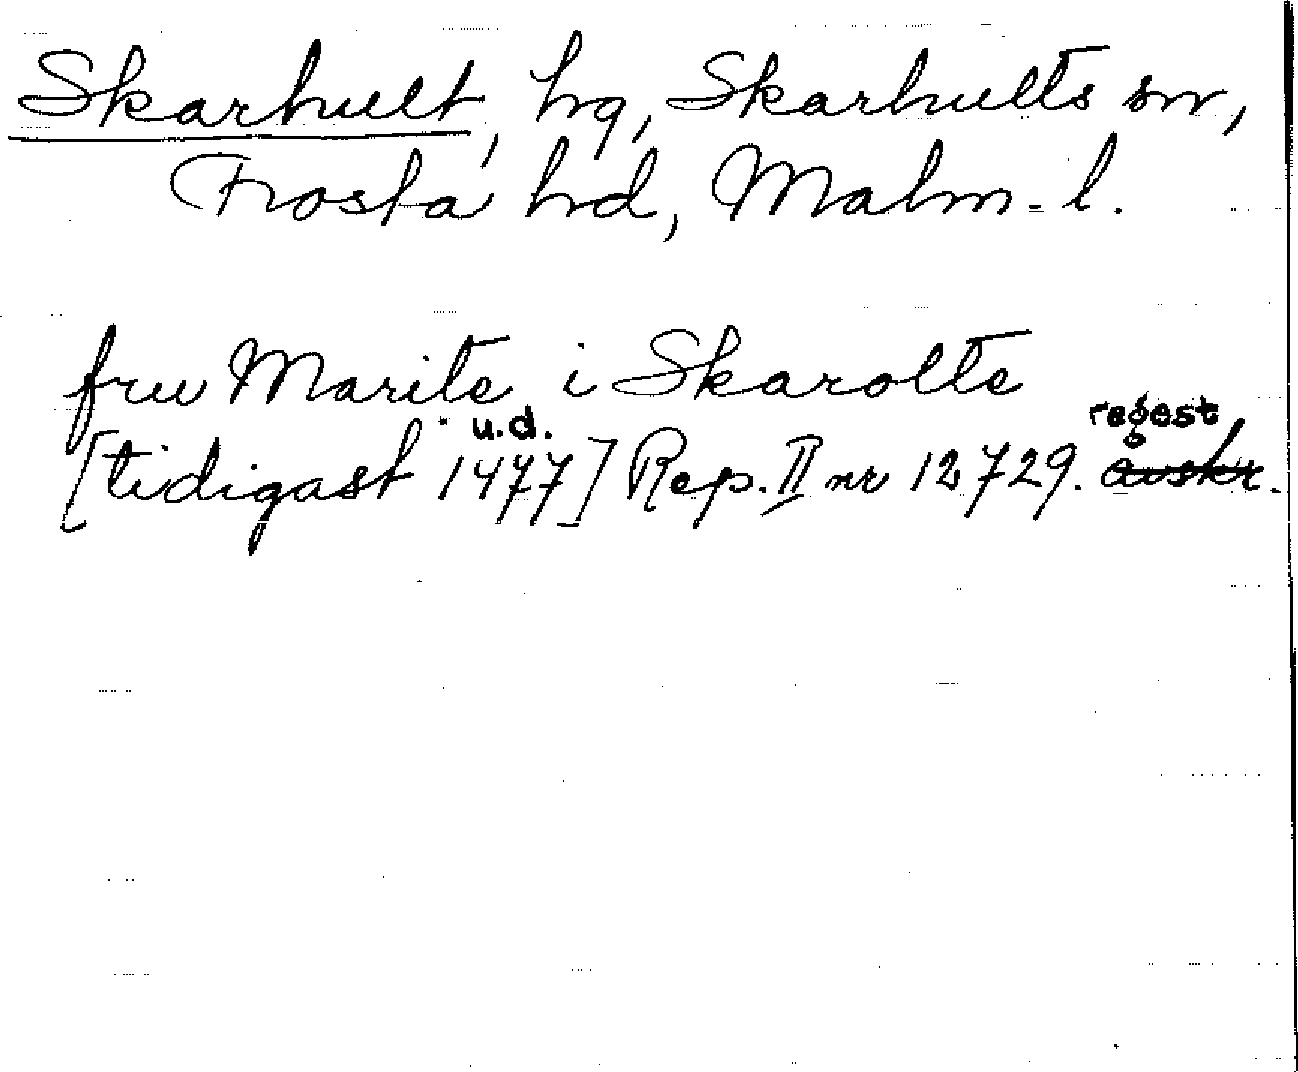 Skarhult, hg, Skarhults sn,
Frosta hd, Malm. l.
fru Marite i Skarolte
u.d. regest
[tidigast 1477] Rep. II nr 12729. avskr.